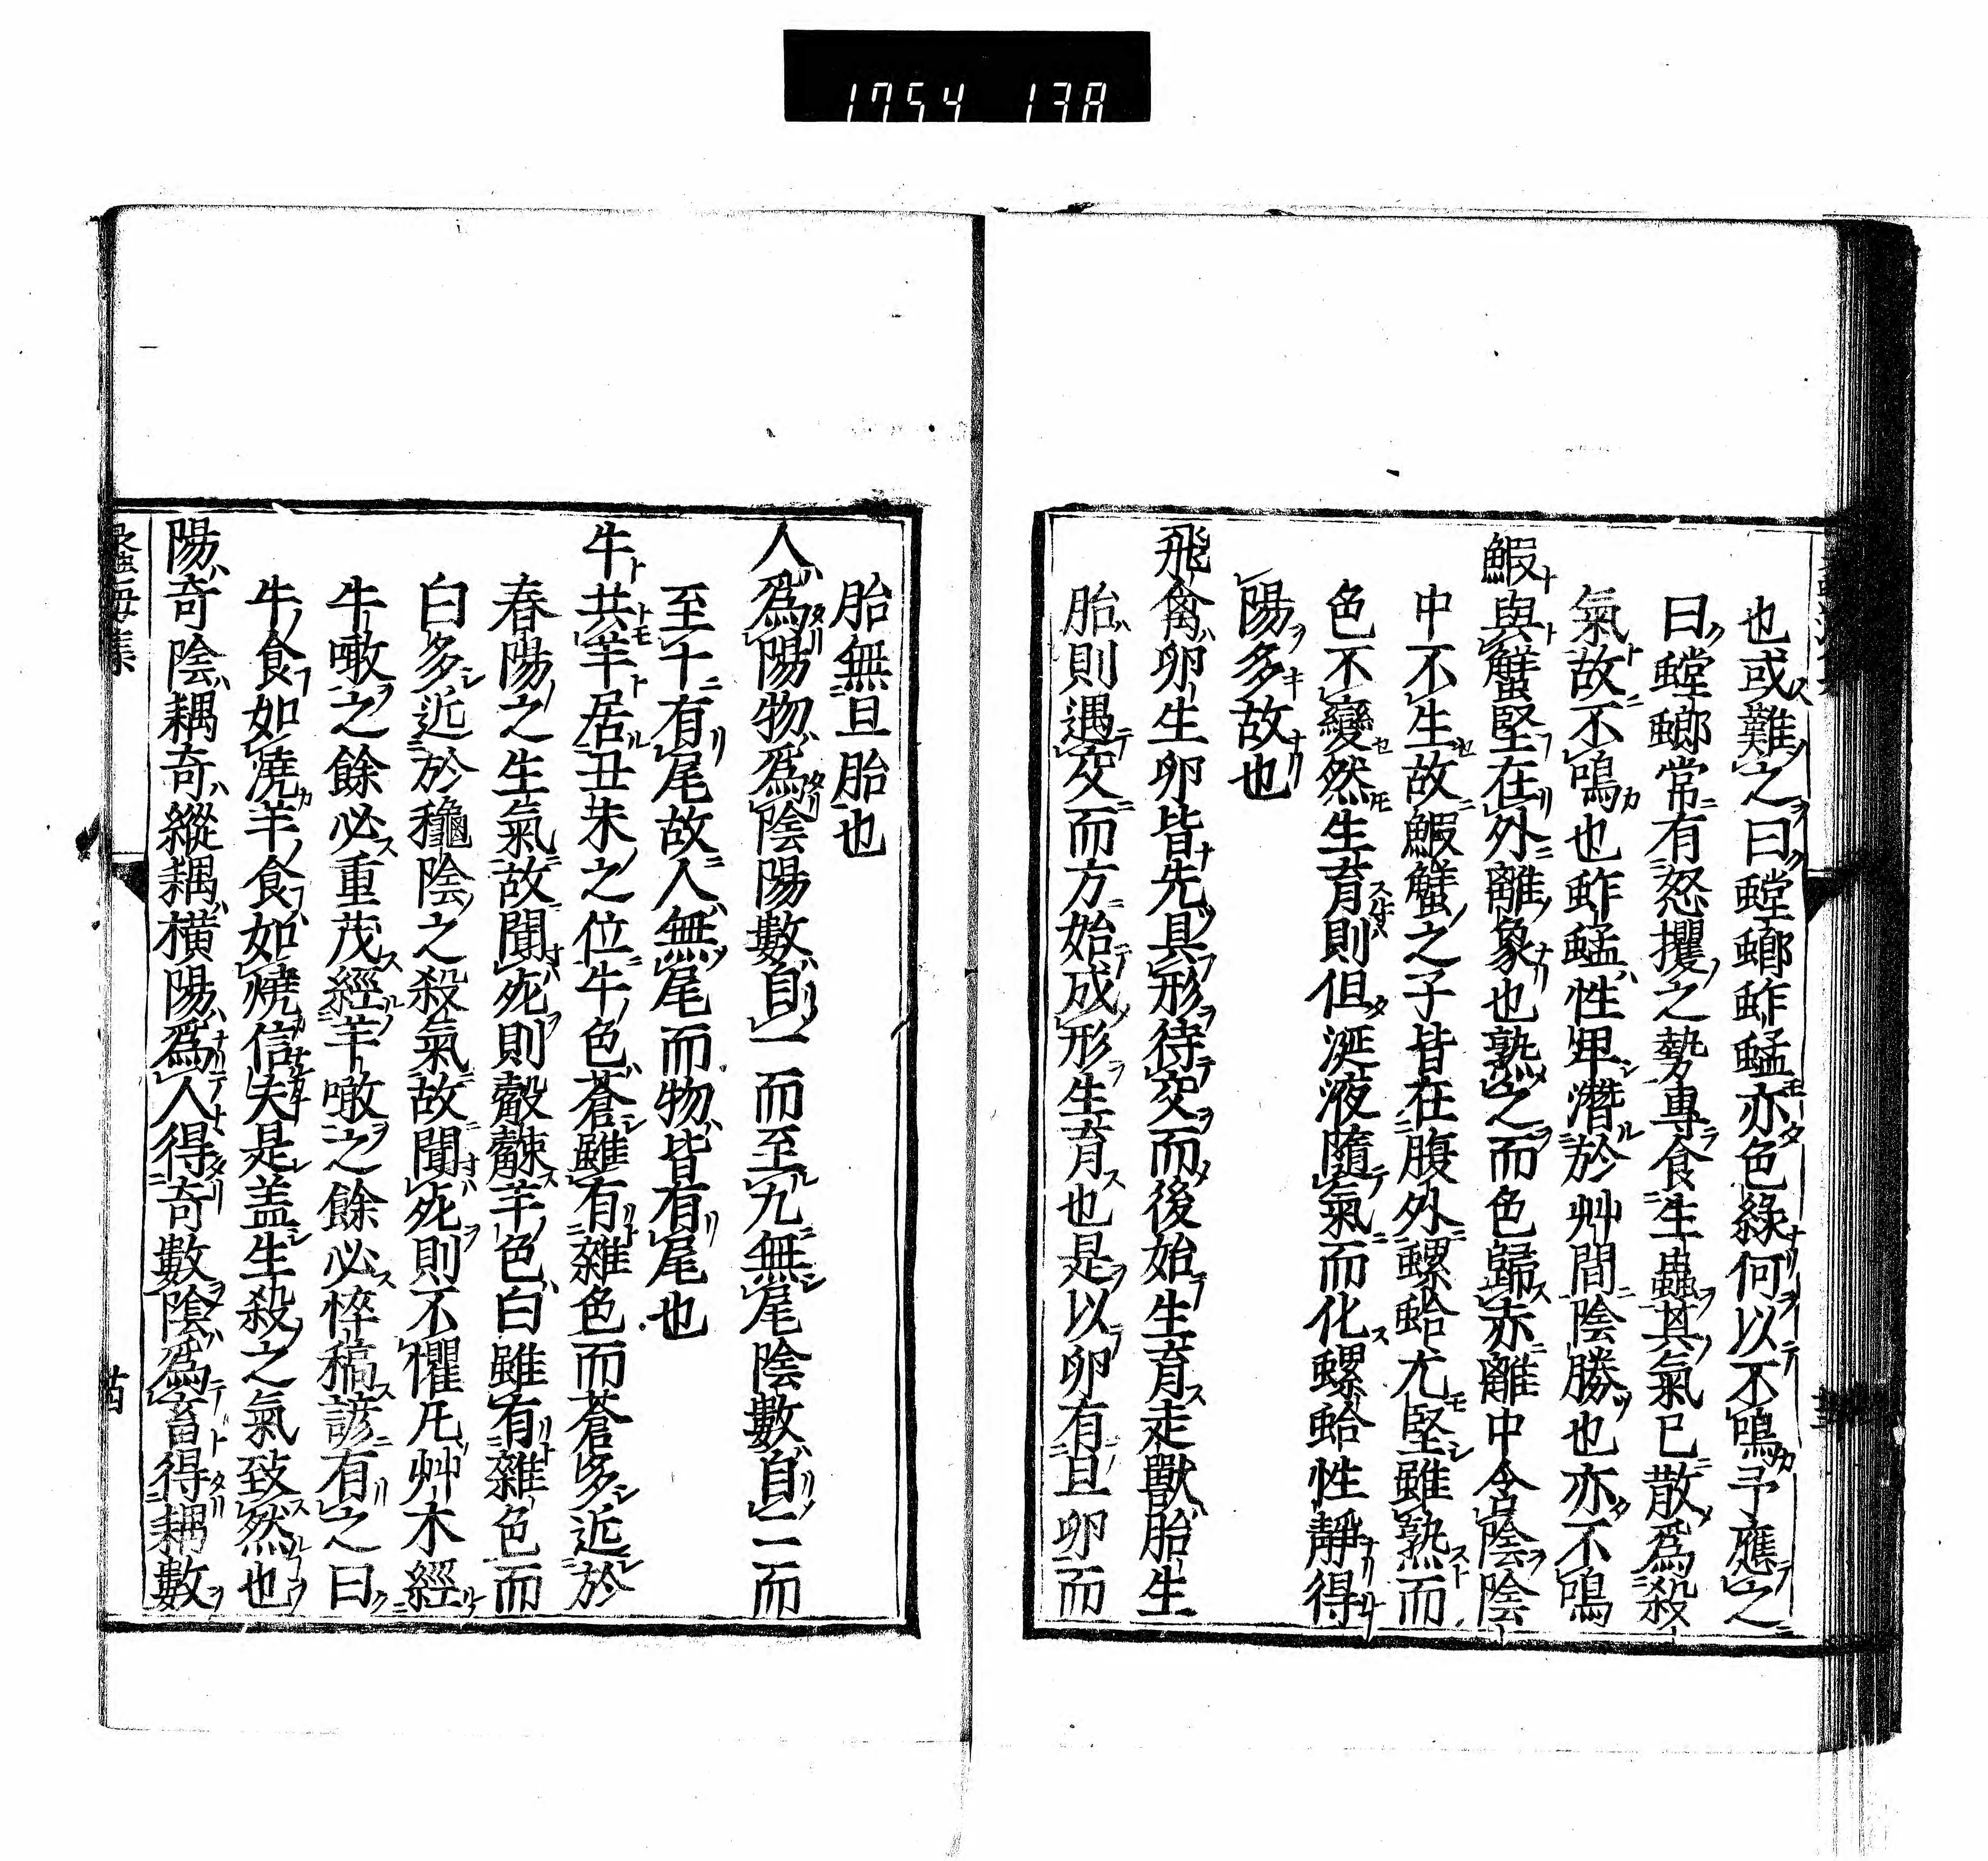 1754 13A
也或難之曰螳螂蚱蜢亦色綠何以不鳴予應之
曰螳螂常有怒攫之勢專食生蟲其氣已散爲殺
氣故不鳴也蚱蜢性卑潛於艸間陰勝也亦不鳴
鰕與蟹堅在外離象也熟之而色歸赤離中含陰陰
中不生故鰕蟹之子皆在腹外螺蛤尤堅雖熟而
色不變然生育則但涎液隨氣而化螺蛤性靜得
陽多故也
飛禽卵生卵皆先具形待交而後始生育走獸胎生
胎則遇交而方始成形生育也是以卵有旦卵而
胎無旦胎也
人爲陽物爲陰陽數自一而至九無尾陰數自二而
至十有尾故人無尾而物皆有尾也
牛共羊居丑未之位牛色蒼雖有雜色而蒼多近於
春陽之生氣故聞死則觳觫羊色白雖有雜色而
白多近於穐陰之殺氣故聞死則不懼凡艸木經
牛噉之餘必重茂經羊噉之餘必悴稿諺有之曰
牛食如澆羊食如燒信夫是盖生殺之氣致然也
陽奇陰耦奇縱耦橫陽爲人得奇數陰爲畜得耦數